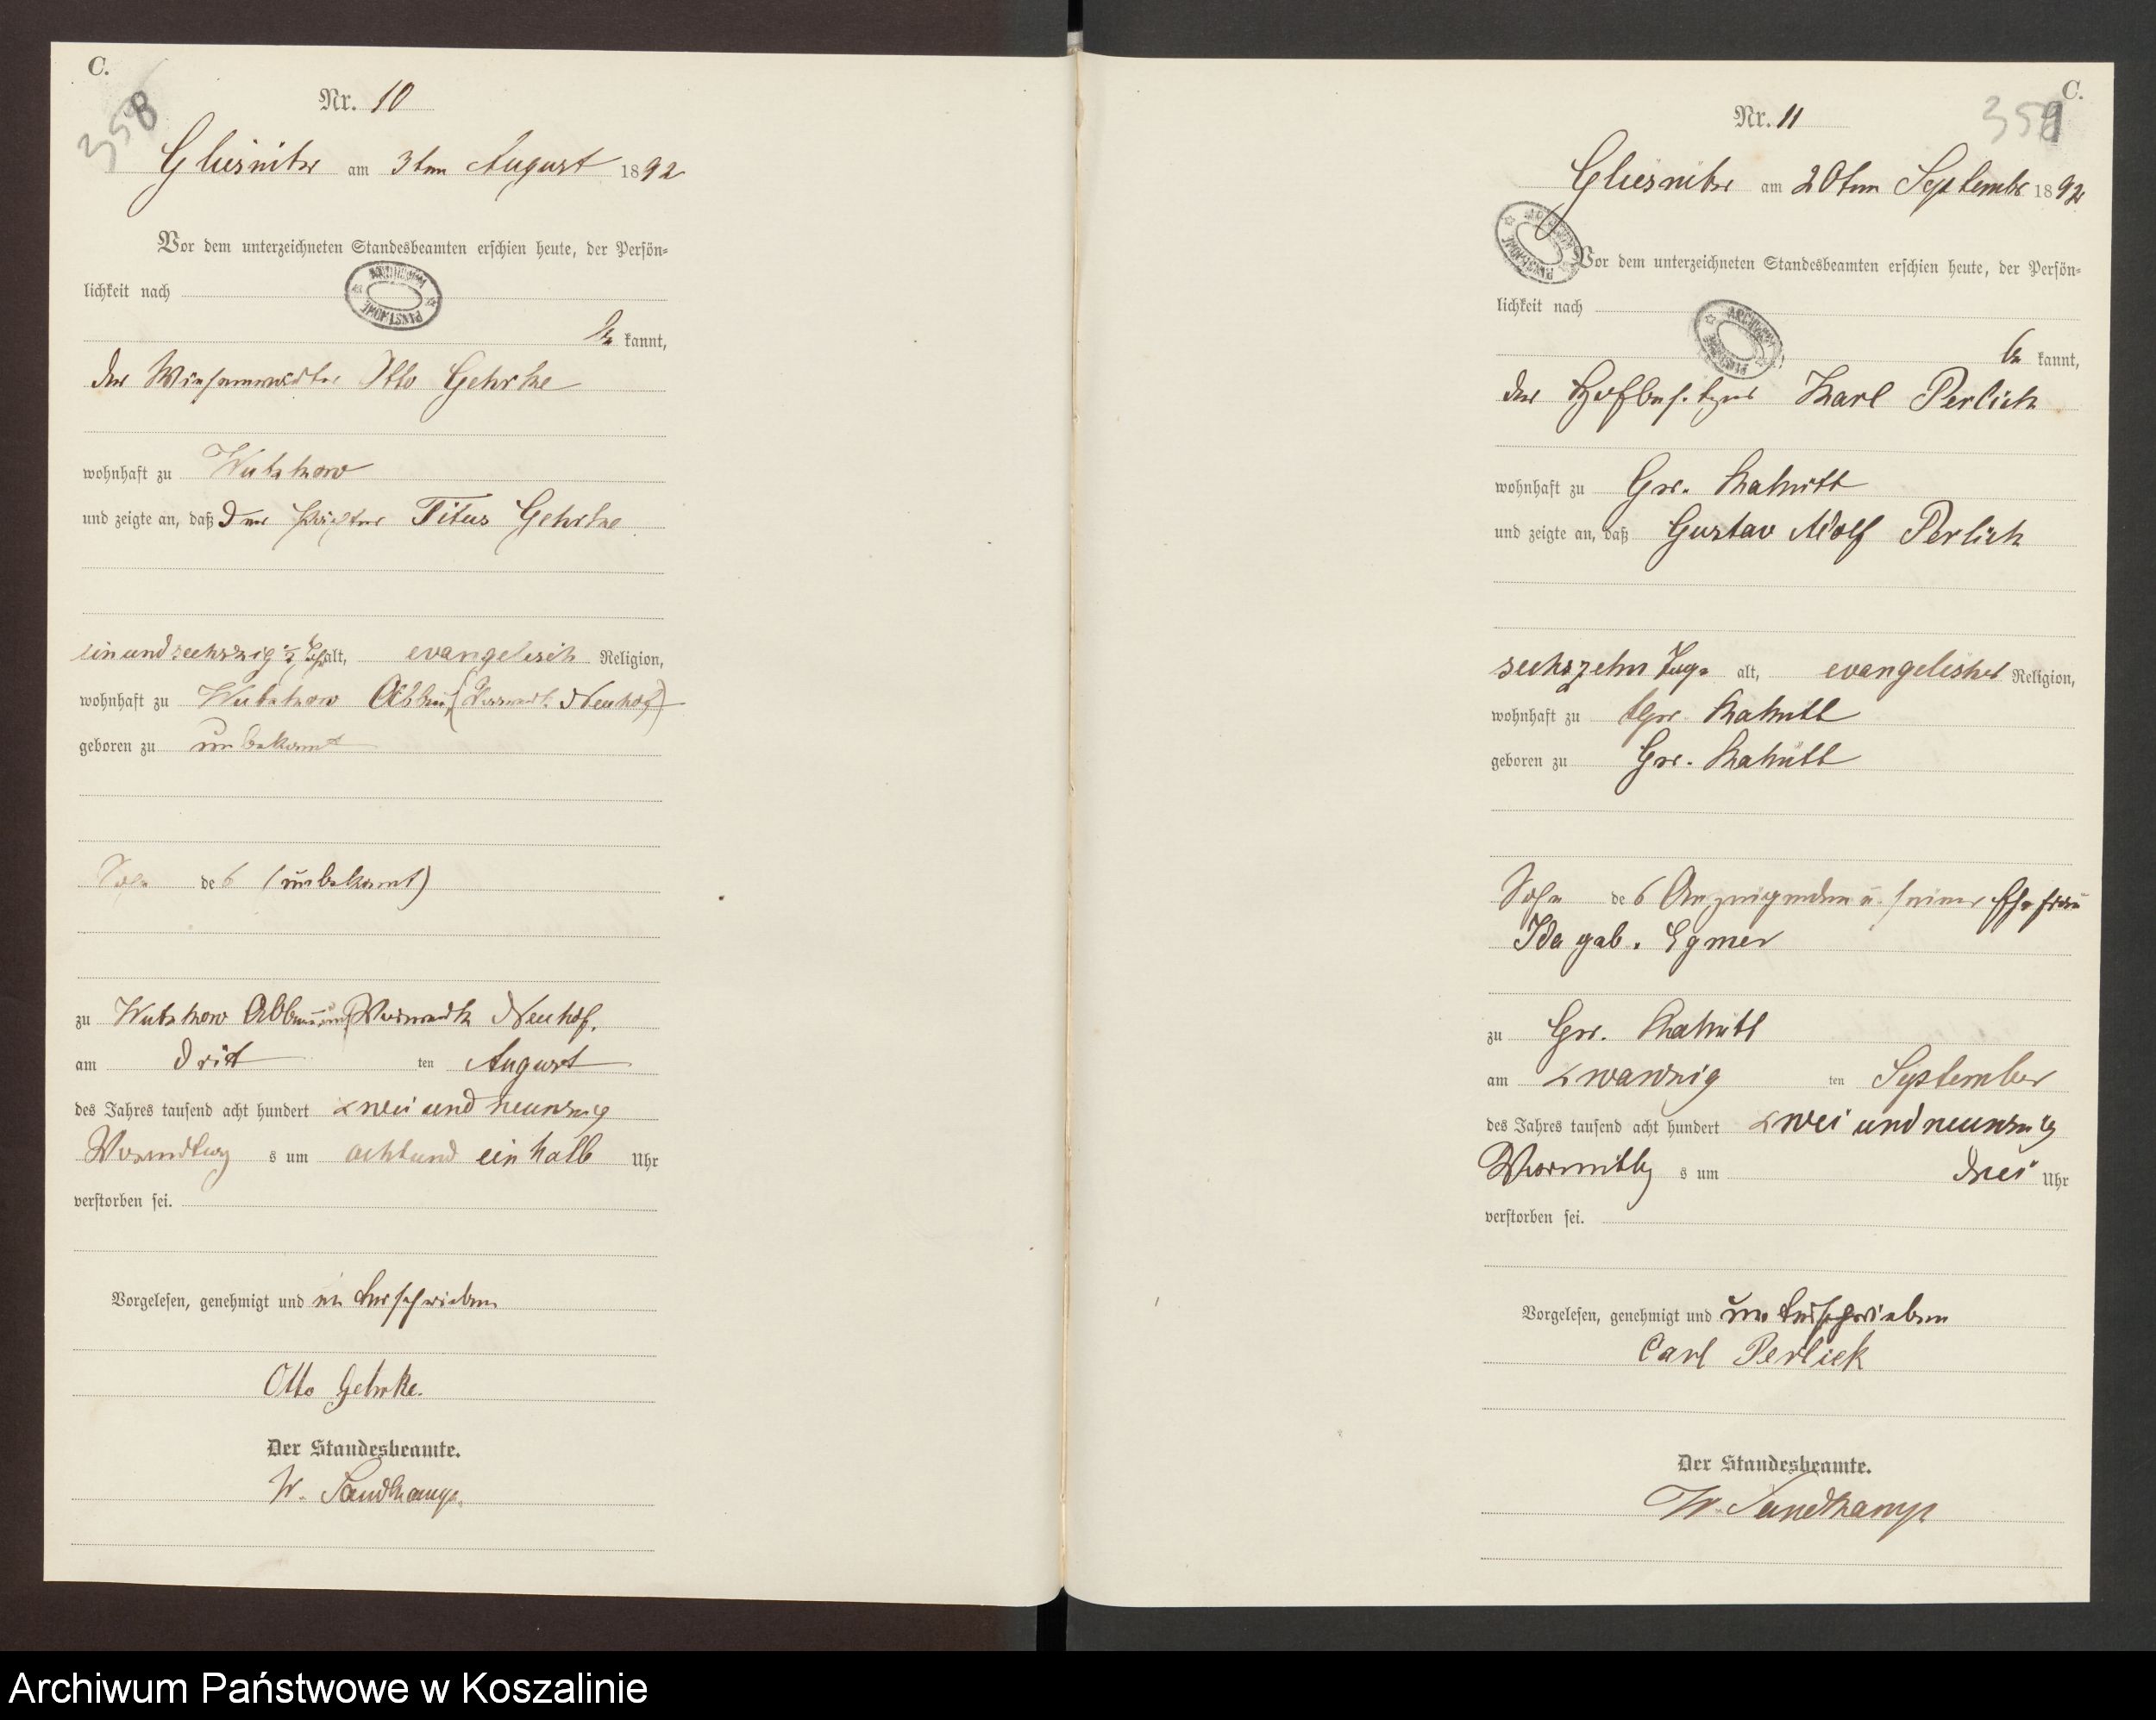 C.
358
Nr. 10
Gliesnitz am 3ten August 1892
Vor dem unterzeichneten Standesbeamten erschien heute, der Persön-
lichkeit nach
be kannt,
der Otto Gehrke
wohnhaft zu Wutzkow
und zeigte an, daß der Titus Gehrke
einundsechszig ½ Jahr alt, evangelisch Religion,
wohnhaft zu Wutzkow Abbau (Neuhof)
geboren zu unbekannt
Sohn des (unbekannt)
zu Wutzkow Abbau Neuhof.
am dritt ten August
des Jahres tausend acht hundert zwei und neunzig
Vormittag s um acht und ein halb Uhr
verstorben sei.
Vorgelesen, genehmigt und unterschrieben
Otto Gehrke.
Der Standesbeamte.
W. Sandkamp.
C.
359
Nr. 11
Gliesnitz am 20ten September 1892
Vor dem unterzeichneten Standesbeamten erschien heute, der Persön-
lichkeit nach
be kannt,
der Hofbesitzer Karl Perlick
wohnhaft zu Gr. Rakitt
und zeigte an, daß Gustav Adolf Perlick
sechszehn Tage alt, evangelischer Religion,
wohnhaft zu Gr. Rakitt
geboren zu Gr. Rakitt
Sohn des Anzeigenden u. seiner Ehefrau
Ida geb. Egmer
zu Gr. Rakitt
am zwanzig ten September
des Jahres tausend acht hundert zwei und neunzig
Vormittag s um drei Uhr
verstorben sei.
Vorgelesen, genehmigt und unterschrieben
Carl Perlick
Der Standesbeamte.
W. Sandkamp
Archiwum Państwowe w Koszalinie